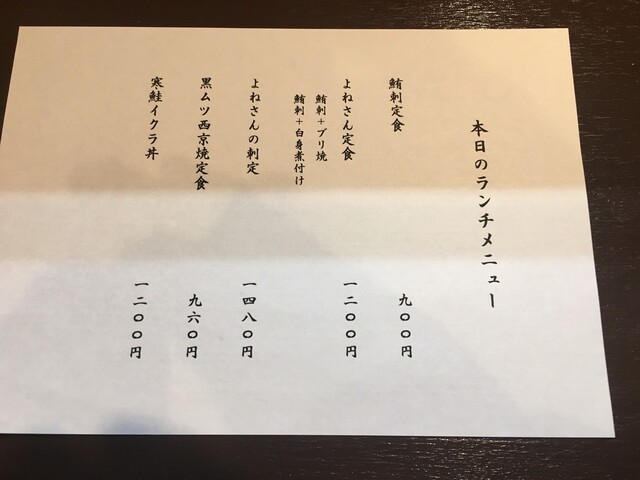 本日のランチメニュー
鮪刺定食 九〇〇円
よねさん定食 一二〇〇円
鮪刺+ブリ焼
鮪刺+白身煮付け
よねさんの刺定 一四八〇円
黒ムツ西京焼定食 九六〇円
寒鮭イクラ丼 一二〇〇円